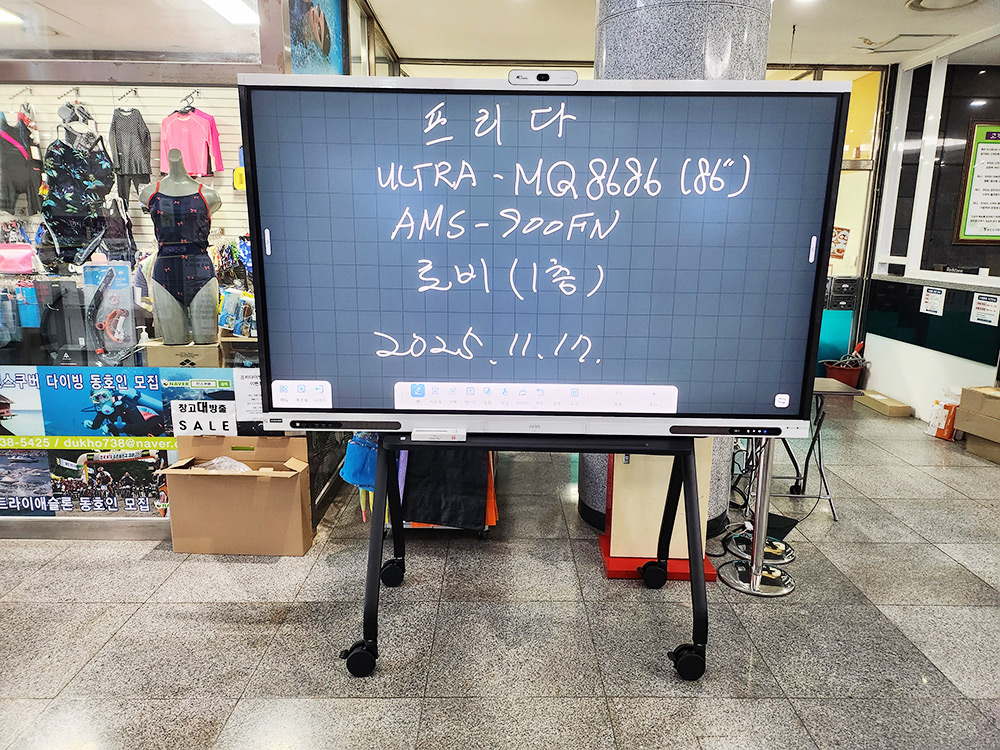 프리다
ULTRA-MQ8686 (86")
AMS-900FN
로비(1층)
2025.11.17.
스쿠버 다이빙 동호인 모집
NAVER
창고대방출
SALE
38-5425 / dukho738@naver.c
트라이애슬론 동호인 모집